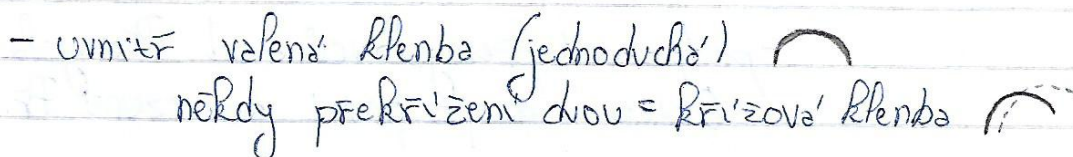 - uvnitř valená klenba (jednoduchá)
někdy překřížení dvou = křížová klenba